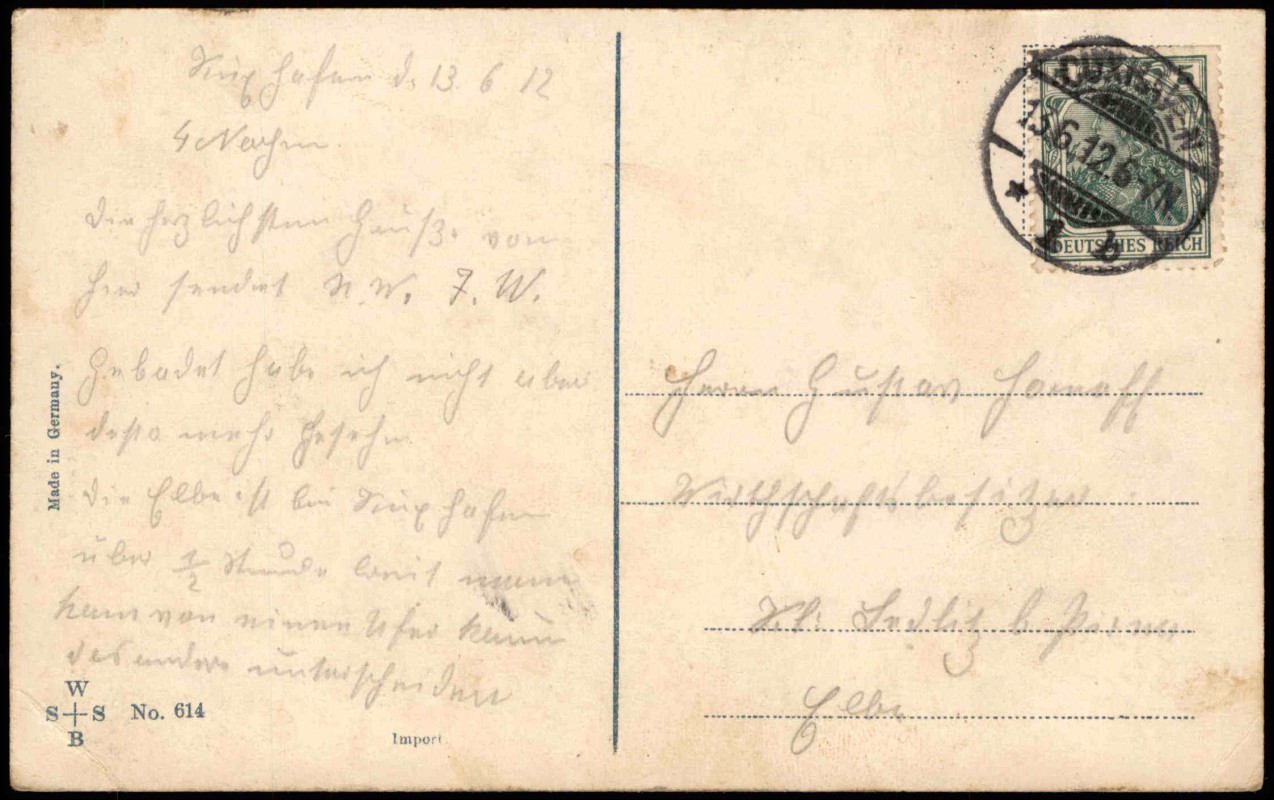 Kuxhafen d. 13. 6 12
4 Nachm.
Die herzlichsten Grüße von
hier sendet N. W. F. W.
Gebadet habe ich nicht aber
desto mehr gesehn
Die Elbe ist bei Kuxhafen
über 1/2 Stunde breit man
kann von einen Ufer kaum
das andere unterscheiden
Made in Germany.
W
S S
B
No. 614
Import
CUXHAVEN
13.6.12.6-7N.
* 1 b
DEUTSCHES REICH
Herrn Gustav
Wirthschaftsbesitzer
Kl: Sedlitz b. Pirna
Elbe